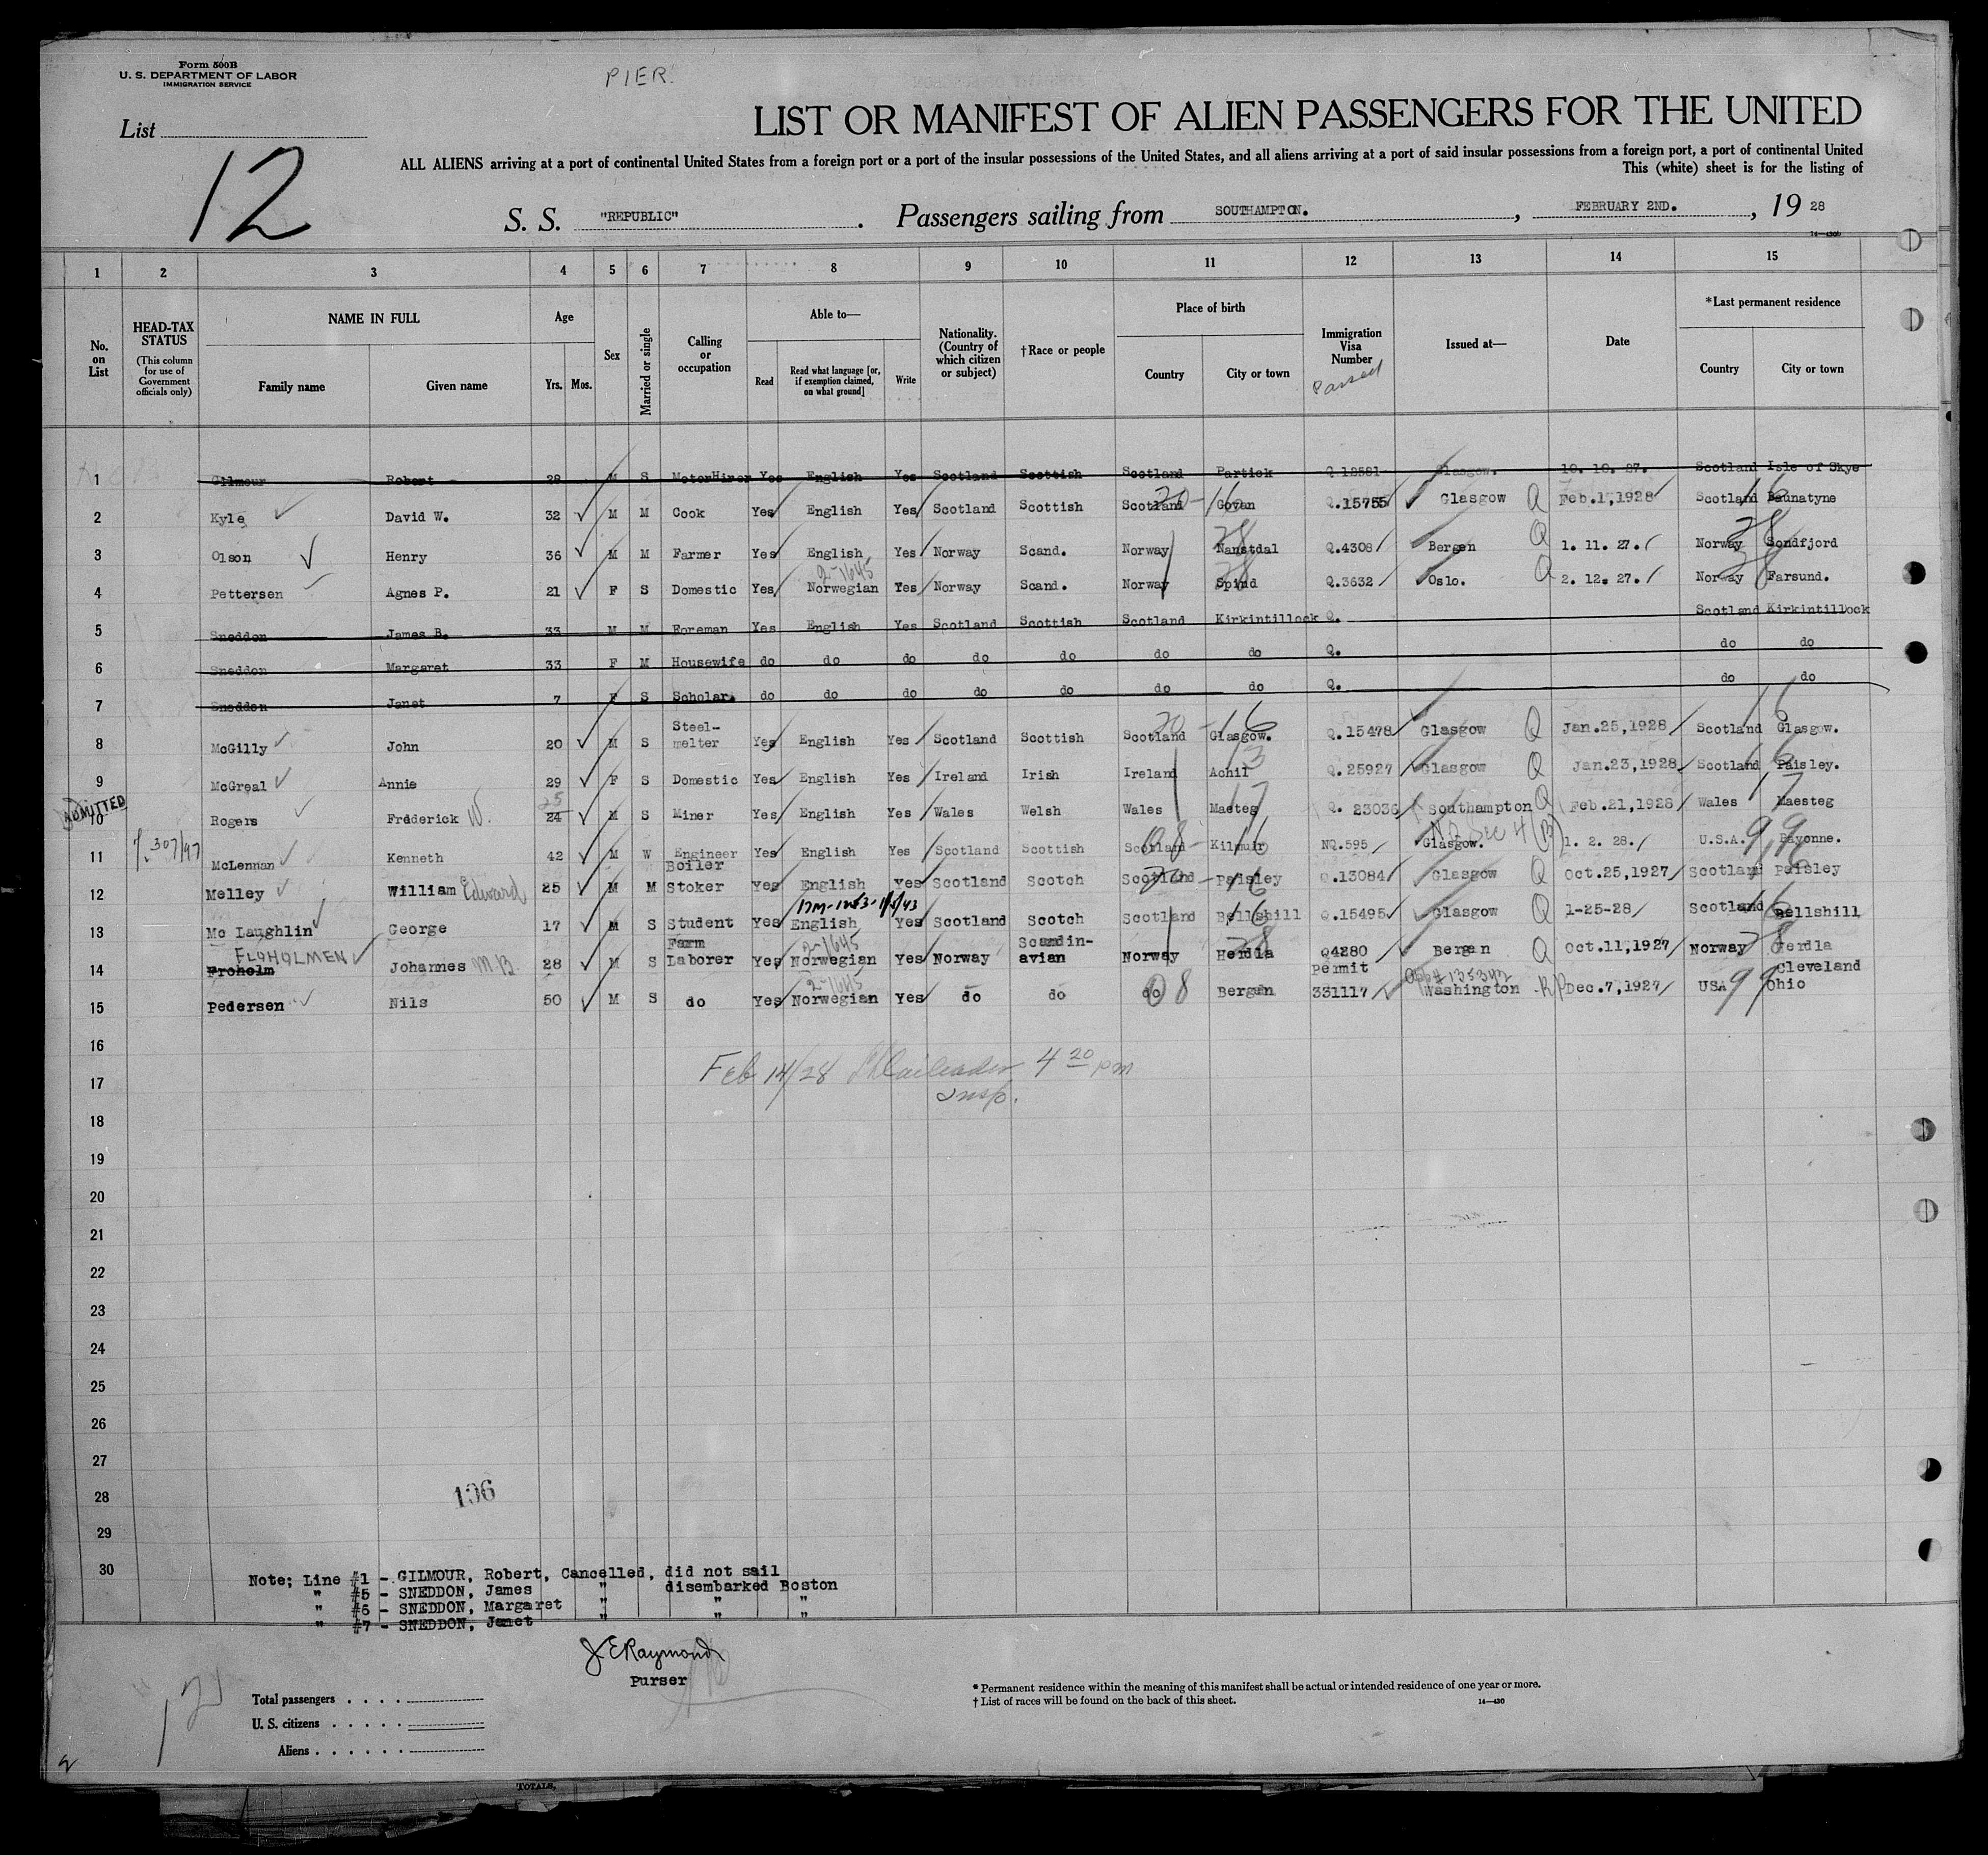 Form 500B
U. S. DEPARTMENT OF LABOR
IMMIGRATION SERVICE
PIER
List
12
LIST OR MANIFEST OF ALIEN PASSENGERS FOR THE UNITED
ALL ALIENS arriving at a port of continental United States from a foreign port or a port of the insular possessions of the United States, and all aliens arriving at a port of said insular possessions from a foreign port, a port of continental United
This (white) sheet is for the listing of
S. S. "REPUBLIC". Passengers sailing from SOUTHAMPTON., FEBRUARY 2ND., 19 28
1 2 3 4 5 6 7 8 9 10 11 12 13 14 15
No. on List
HEAD-TAX STATUS (This column for use of Government officials only)
NAME IN FULL Family name Given name
Age Yrs. Mos.
Sex
Married or single
Calling or occupation
Able to— Read Read what language [or, if exemption claimed, on what ground] Write
Nationality. (Country of which citizen or subject)
†Race or people
Place of birth Country City or town
Immigration Visa Number
Passed
Issued at—
Date
*Last permanent residence Country City or town
1 Gilmour Robert 28 M S MotorHirer Yes English Yes Scotland Scottish Scotland Partick Q.12581 Glasgow. 10. 10. 27. Scotland Isle of Skye
2 Kyle David W. 32 M M Cook Yes English Yes Scotland Scottish Scotland Govan Q.15755 Glasgow Q Feb.1,1928 Scotland Baunatyne
3 Olson Henry 36 M M Farmer Yes English Yes Norway Scand. Norway Namstdal Q.4308 Bergen Q 1. 11. 27. Norway Sondfjord
4 Pettersen Agnes P. 21 F S Domestic Yes 2-1645 Norwegian Yes Norway Scand. Norway Spind Q.3632 Oslo. Q 2. 12. 27. Norway Farsund.
5 Sneddon James B. 33 M M Foreman Yes English Yes Scotland Scottish Scotland Kirkintillock Q. Scotland Kirkintillock
6 Sneddon Margaret 33 F M Housewife do do do do do do do Q. do do
7 Sneddon Janet 7 F S Scholar. do do do do do do do Q. do do
8 McGilly John 20 M S Steel-melter Yes English Yes Scotland Scottish Scotland Glasgow. Q.15478 Glasgow Q Jan.25,1928 Scotland Glasgow.
9 McGreal Annie 29 F S Domestic Yes English Yes Ireland Irish Ireland Achil Q.25927 Glasgow Q Jan.23,1928 Scotland Paisley.
ADMITTED
10 Rogers Frederick W. 25 24 M S Miner Yes English Yes Wales Welsh Wales Maeteg Q. 23036 Southampton Q Feb.21,1928 Wales Maesteg
11 McLennan Kenneth 42 M W Engineer Yes English Yes Scotland Scottish Scotland Kilmuir NQ.595 Glasgow. 1. 2. 28. U.S.A. Bayonne.
12 Melley William Edward 25 M M Boiler Stoker Yes English Yes Scotland Scotch Scotland Paisley Q.13084 Glasgow Q Oct.25,1927 Scotland Paisley
13 Mc Laughlin George 17 M S Student Yes English Yes Scotland Scotch Scotland Bellshill Q.15495 Glasgow Q 1-25-28 Scotland Bellshill
14 Froholm FLOHOLMEN Johannes M.B. 28 M S Farm Laborer Yes 2-1645 Norwegian Yes Norway Scandin-avian Norway Herdla Q4280 Bergen Q Oct.11,1927 Norway Herdla
15 Pedersen Nils 50 M S do Yes 2-1645 Norwegian Yes do do do Bergen Permit 331117 Washington RP Dec.7,1927 USA Cleveland Ohio
16
17
Feb 14/28 4 20 pm
Insp.
18
19
20
21
22
23
24
25
26
27
28
196
29
30
Note; Line #1 - GILMOUR, Robert, Cancelled, did not sail
" #5 - SNEDDON, James " disembarked Boston
" #6 - SNEDDON, Margaret " " "
" #7 - SNEDDON, Janet " " "
J E Raymond
Purser
Total passengers
U. S. citizens
Aliens
* Permanent residence within the meaning of this manifest shall be actual or intended residence of one year or more.
† List of races will be found on the back of this sheet.
14—430
TOTALS,